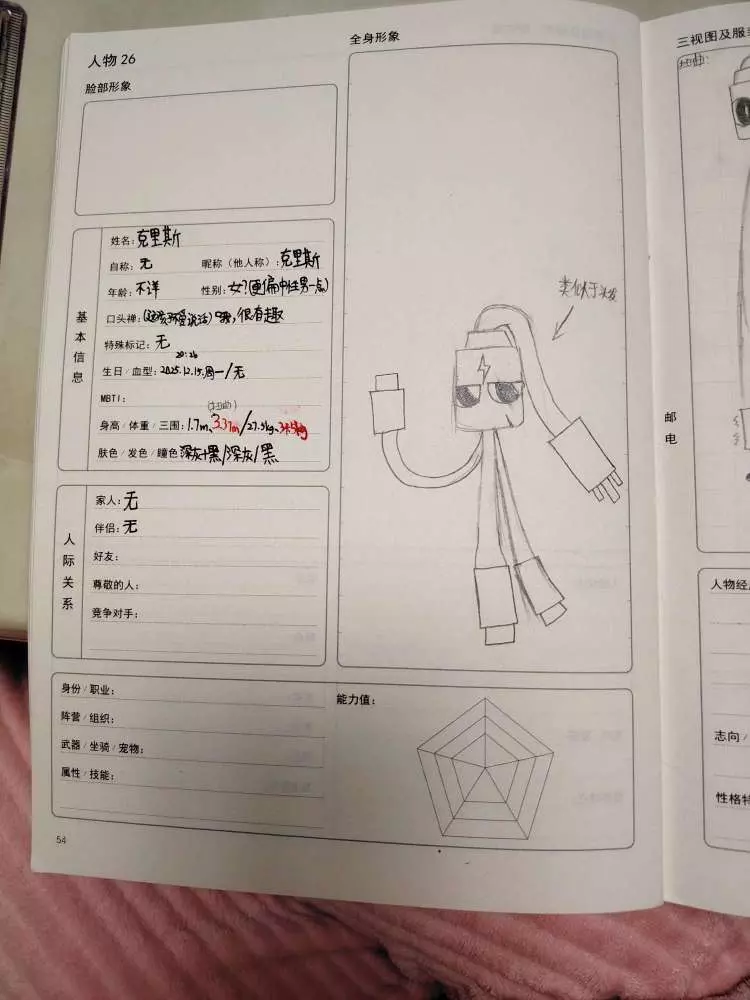 人物 26
脸部形象
全身形象
基本信息
姓名:克里斯
自称:无 昵称(他人称):克里斯
年龄:不详 性别:女?(更偏中性男一点)
口头禅:(这孩不爱说话)哦,很有趣
特殊标记:无
20:26
生日/血型:2025.12.15.周一/无
MBTI:
(扭曲)
身高/体重/三围:1.7m、3.37m/27.5kg、
肤色/发色/瞳色 深灰+黑/深灰/黑
类似于头发
人际关系
家人:无
伴侣:无
好友:
尊敬的人:
竞争对手:
身份/职业:
阵营/组织:
武器/坐骑/宠物:
属性/技能:
能力值:
54
三视图及服
扭曲:
邮电
人物经
志向/
性格特